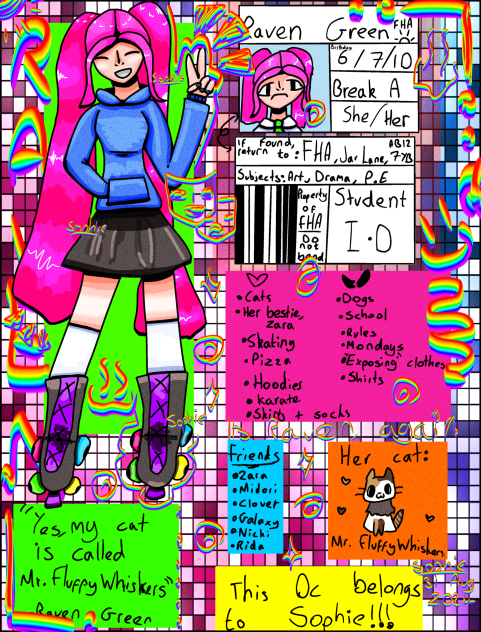 Raven Green
FHA
Birthday
6/7/10
Break A
She/Her
If found, return to: FHA, Jar Lane, AB12 7YB
Subjects: Art, Drama, P.E
Property OF FHA Do not bend
Student
I.D
•Cats
•Her bestie, zara
•Skating
•Pizza
•Hoodies
•karate
•Skirts + socks
•Dogs
•School
•Rules
•Mondays
•"Exposing" clothes
•Shirts
Raven again
Friends
•Zara
•Midori
•clover
•Galaxy
•Nicki
•Rida
Her cat:
Mr. FluffyWhiskers
"Yes, my cat
is called
Mr. FluffyWhiskers"
Raven Green
This Oc belongs
to Sophie!!!
Sophie
Sophie
Sophie
Sophie